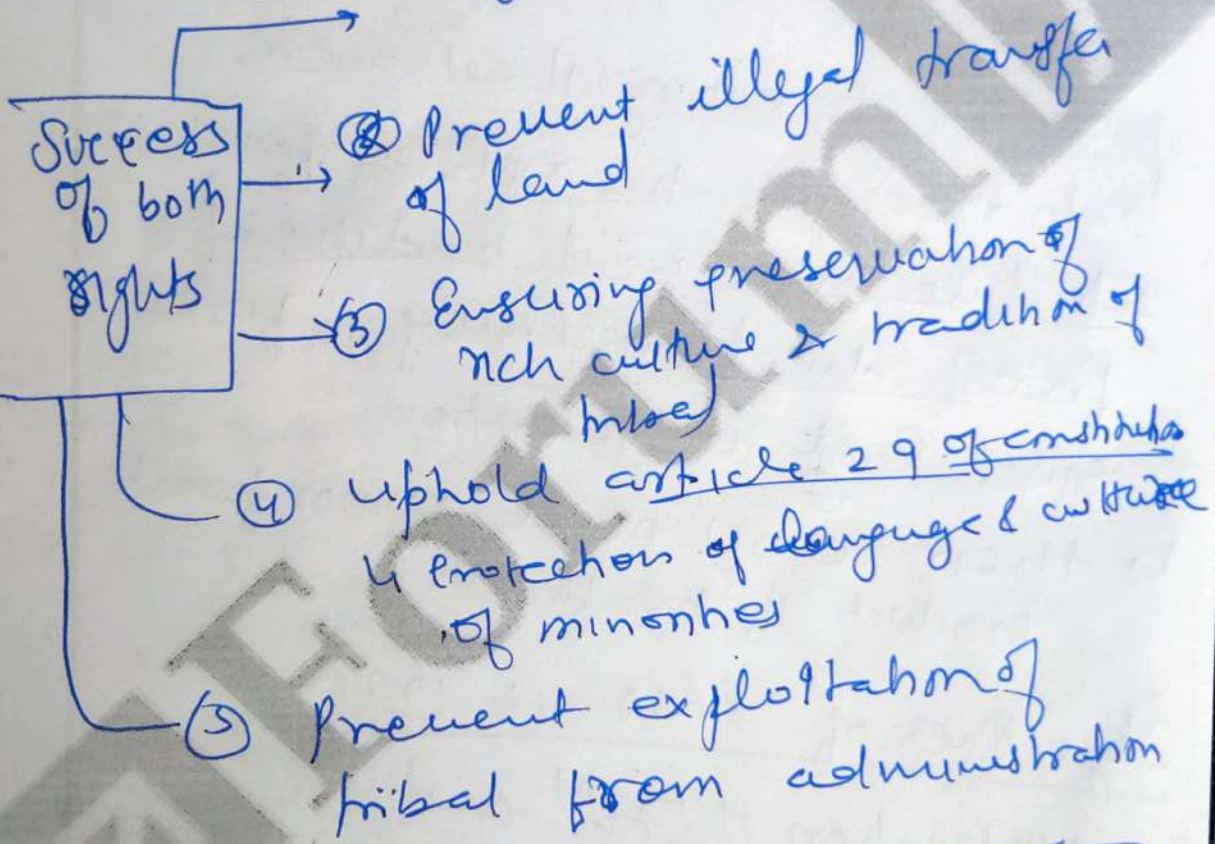 Success
of both
rights
② Prevent illegal transfer
of land
③ Ensuring preservation of
rich culture & tradition of
tribal
④ Uphold article 29 of constitution
↳ Protection of language & culture
of minorities
⑤ Prevent exploitation of
tribal from administration
Forum